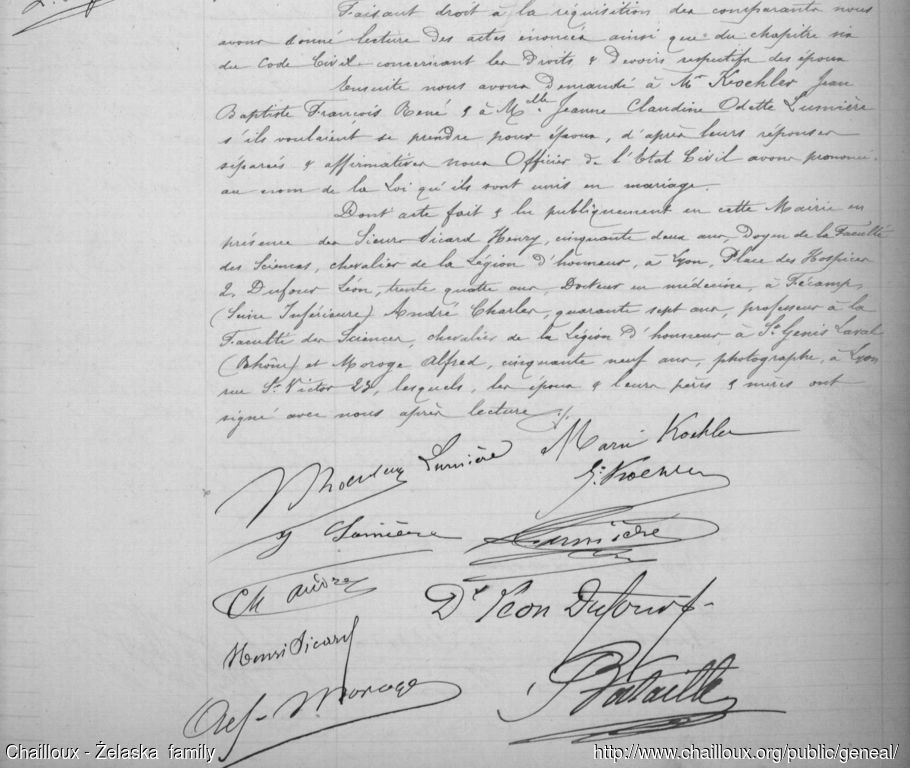 Faisant droit à la réquisition des comparants nous
avons donné lecture des actes énoncés ainsi que du chapitre six
du Code Civil concernant les Droits & Devoirs respectifs des époux
Ensuite nous avons Demandé à Mr Koehler Jean
Baptiste François René & à Melle Jeanne Claudine Odette Lumière
s'ils voulaient se prendre pour époux, d'après leurs réponses
séparées & affirmatives nous Officier de l'Etat Civil avons prononcé
au nom de la Loi qu'ils sont unis en mariage.
Dont acte fait & lu publiquement en cette Mairie en
présence des Sieurs Sicard Henry, cinquante deux ans, Doyen de la Faculté
des Sciences, chevalier de la Légion d'honneur, à Lyon, Place des Hospices
2, Dufour Léon, trente quatre ans, Docteur en médecine, à Fécamp,
(Seine Inférieure) André Charles, quarante sept ans, professeur à la
Faculté des Sciences, chevalier de la Légion d'honneur à St Genis Laval
(Rhône) et Moroge Alfred, cinquante neuf ans, photographe, à Lyon
rue St Victor 23, lesquels, les époux & leurs pères & mères ont
signé avec nous après lecture ./.
Lumière Marie Koehler
Koehler
J Lumière Lumière
Ch André
Dr Léon Dufour
Henri Sicard
Alf Moroge Bataille
Chailloux - Żelaska family http://www.chailloux.org/public/geneal/